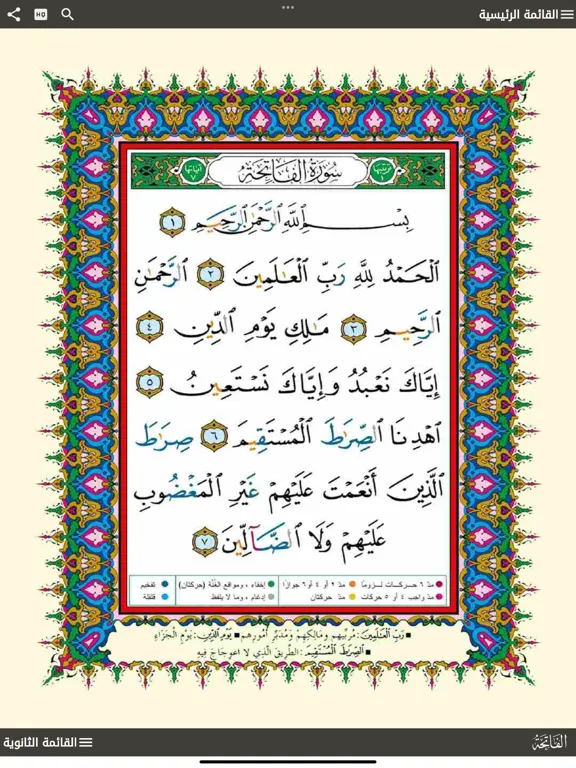 القائمة الرئيسية
HQ
ترتيبها ١
سُورَةُ الْفَاتِحَةِ
آياتها ٧
بِسْمِ ٱللَّهِ ٱلرَّحْمَٰنِ ٱلرَّحِيمِ ١
ٱلْحَمْدُ لِلَّهِ رَبِّ ٱلْعَٰلَمِينَ ٢ ٱلرَّحْمَٰنِ
ٱلرَّحِيمِ ٣ مَٰلِكِ يَوْمِ ٱلدِّينِ ٤
إِيَّاكَ نَعْبُدُ وَإِيَّاكَ نَسْتَعِينُ ٥
ٱهْدِنَا ٱلصِّرَٰطَ ٱلْمُسْتَقِيمَ ٦ صِرَٰطَ
ٱلَّذِينَ أَنْعَمْتَ عَلَيْهِمْ غَيْرِ ٱلْمَغْضُوبِ
عَلَيْهِمْ وَلَا ٱلضَّآلِّينَ ٧
مدّ ٦ حركـات لـزومـًا مدّ ٢ أو ٤ أو ٦ جوازًا إخفاء، ومواقع الغُنَّة (حركتان) تفخيم
مدّ واجب ٤ أو ٥ حركات مدّ حركتان إدغام، وما لا يلفظ قلقلة
رَبِّ الْعَالَمِينَ: مُرَبِّيهِم ومَالِكِهِمْ وَمُدَبِّرِ أُمُورِهِم يَوْمِ الدِّينِ: يَوْمِ الْجَزَاءِ
الصِّرَاطَ الْمُسْتَقِيمَ: الطَّرِيقَ الَّذِي لا اعوجَاجَ فِيهِ
الْفَاتِحَةِ
القائمة الثانوية